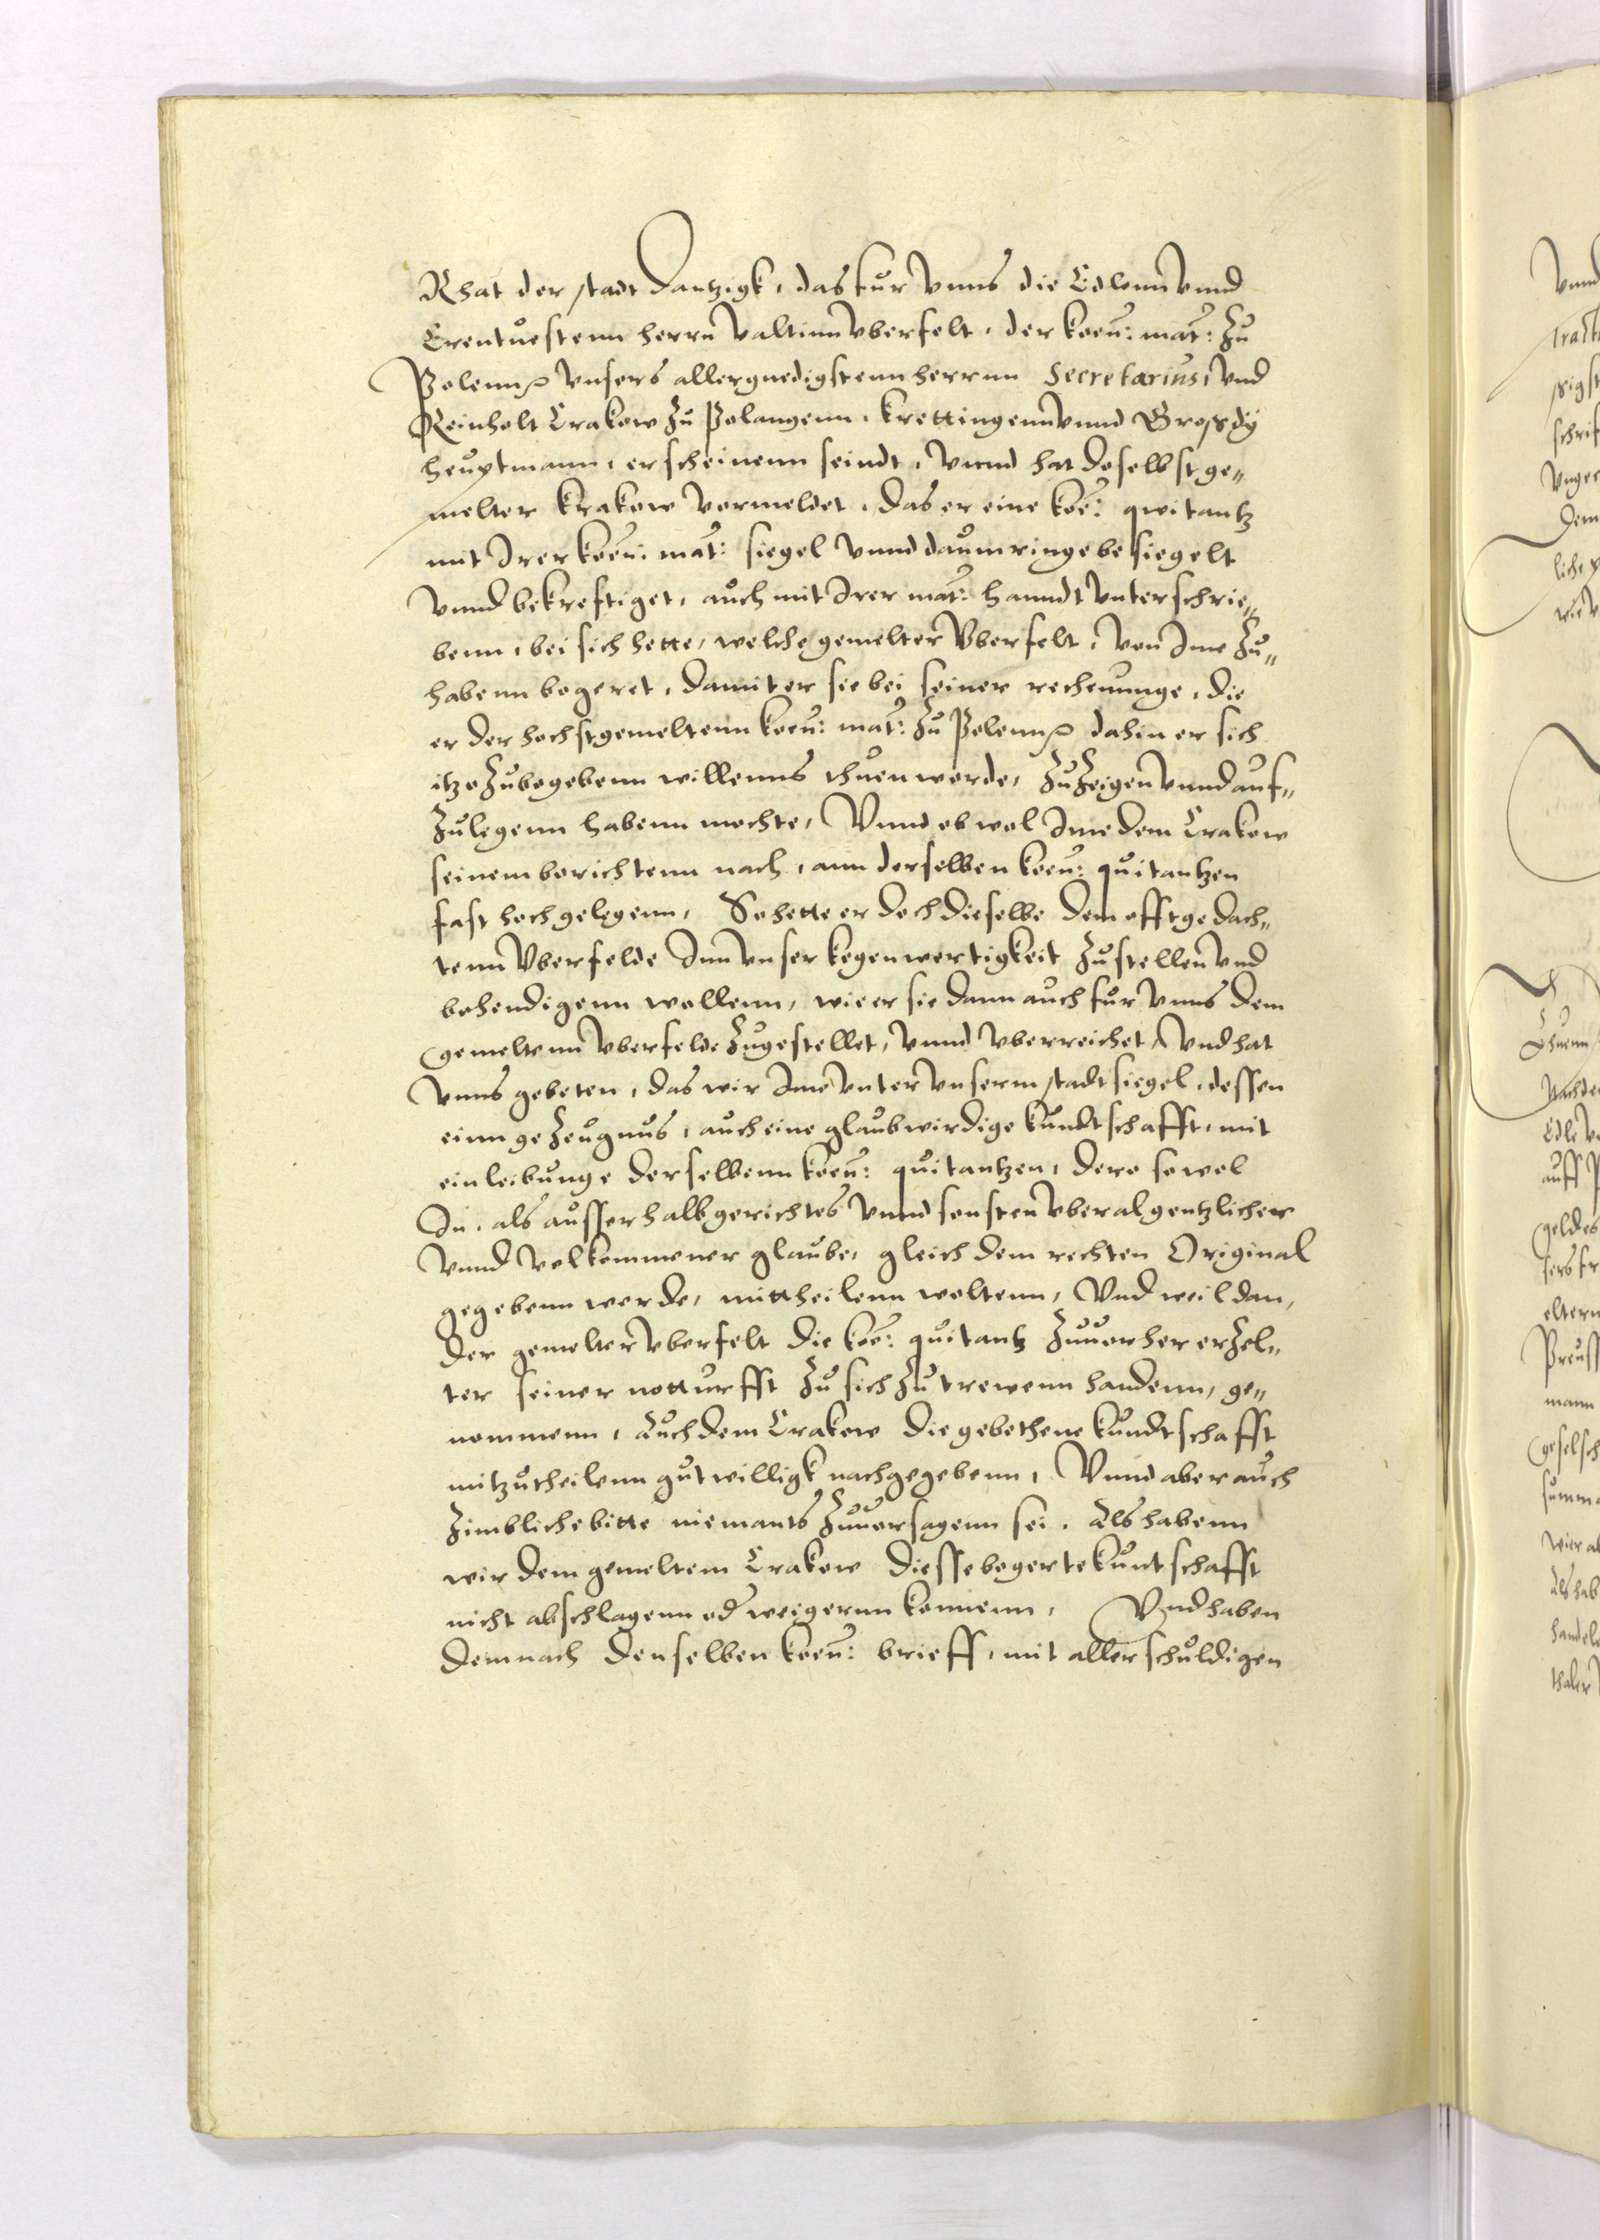 Rhat der stadt Dantzigk, das fur vnns die Edlenn vnnd
Erentuestenn herrn Valtinn Vberfelt, der koen: mat: zu
Polenn ꝛc vnsers allergnedigstenn herrnn Secretarius, vnd
Reinholt Crakow zu Polangenn, krettingenn vnnd Grosdy
heuptmann, erscheinenn seindt, vnnd hat doselbst ge„
melter krakow vormeldet, das er eine koe: qwitantz
mit Irer koen: mat: siegel vnnd daumringe besiegelt
vnnd bekreftiget, auch mit Irer mat: hanndt vnterschrie„
benn, bei sich hette, welche gemelter Vberfelt, von Ime zu„
habenn begeret, damit er sie bei seiner rechenunge, die
er der hochstgemeltenn koen: mat: zu Polenn ꝛc dahin er sich
itzo zubegebenn willenns thuen werde, zuzeigen vnnd auf„
zulegenn habenn mochte, Vnnd ob wol Ime dem Crakow
seinem berichtenn nach, ann derselben koen: quitantzen
fast hoch gelegenn, So hette er doch dieselbe dem offtgedach„
tenn Vberfelde Inn vnser kegenwertigkeit zustellen vnd
behendigenn wollenn, wie er sie dann auch fur vnns dem
gemeltenn Vberfelde zugestellet, vnnd vberreichet, Vnd hat
vnns gebeten, das wir Ime vnter vnserm stadtsiegel, dessen
einn gezeugnus, auch eine glaubwirdige kundtschafft, mit
einleibunge derselbenn koen: quitantzen, dero sowol
In, als ausserhalb gerichtes vnnd sonsten vberal gentzlicher
vnnd volkommener glaube, gleich dem rechten Original
gegebenn werde, mittheilenn woltenn, Vnd weil dan,
der gemelter Vberfelt die koe: quitantz zuuorher erzel„
ter seiner notturfft zu sich zu trewenn handenn, ge„
nommenn, Auch dem Crakow die gebethene kundtschafft
mitzutheilenn gutwilligk nachgegebenn, Vnnd aber auch
zimbliche bitte niemants zuuorsagenn sei, Als habenn
wir dem gemeltem Crakow diesse begerte kuntschafft
nicht abschlagenn od weigernn konnenn, Vnd haben
demnach denselben koen: brieff, mit aller schuldigen